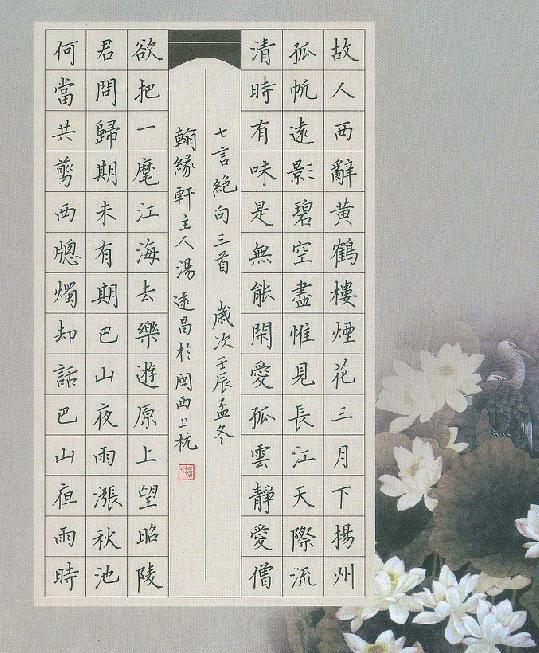 故人西辭黃鶴樓煙花三月下揚州
孤帆遠影碧空盡惟見長江天際流
清時有味是無能閑愛孤雲靜愛僧
七言絕句三首 歲次壬辰孟冬
翰緣軒主人湯遠昌於閩西上杭
欲把一麾江海去樂遊原上望昭陵
君問歸期未有期巴山夜雨漲秋池
何當共翦西牕燭却話巴山夜雨時